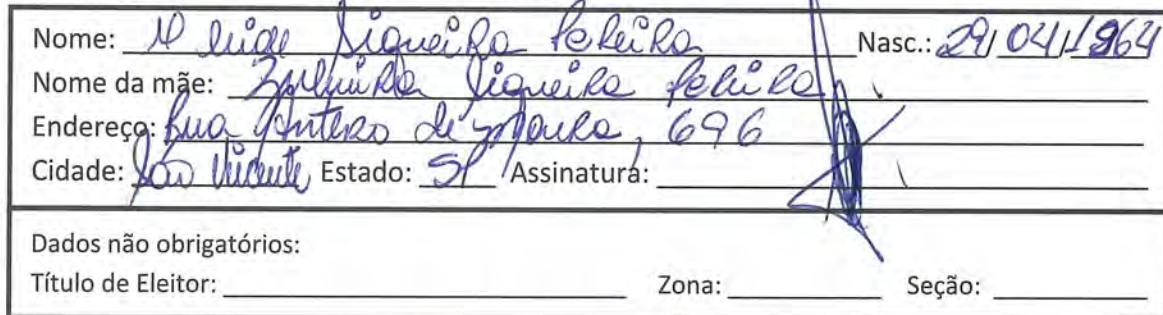 Nome: Mª Siqueira Pereira Nasc.: 29/04/1964
Nome da mãe: Zulmira Siqueira Pereira
Endereço: Rua Antero de Moura, 696
Cidade: São Vicente, Estado: SP Assinatura:
Dados não obrigatórios:
Título de Eleitor: Zona: Seção: